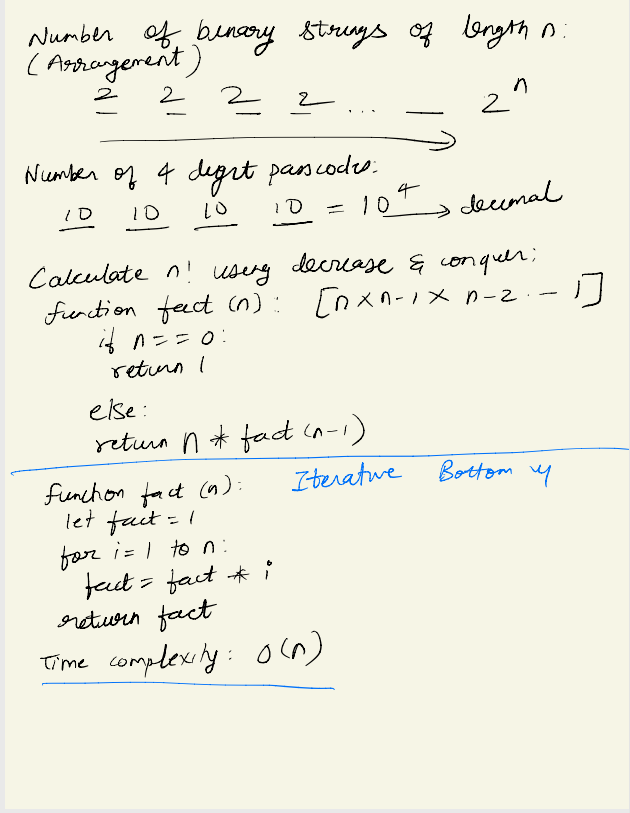 Number of binary strings of length n:
(Arrangement)
2 2 2 2 ... __ 2^n
Number of 4 digit passcodes:
10 10 10 10 = 10^4 → decimal
Calculate n! using decrease & conquer:
function fact (n): [n x n-1 x n-2 .- 1]
if n == 0:
return 1
else:
return n * fact (n-1)
function fact (n): Iterative Bottom up
let fact = 1
for i = 1 to n:
fact = fact * i
return fact
Time complexity: O(n)